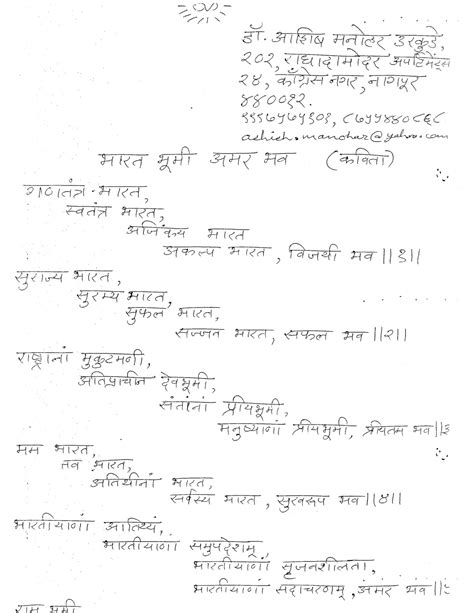 डॉ. आशिष मनोहर उरकुडे,
२०२, राधादामोदर अपार्टमेंट्स
२४, काँग्रेस नगर, नागपूर
४४००१२.
ashish.manohar@yahoo.com
भारत भूमी अमर भव (कविता)
गणतंत्र-भारत,
स्वतंत्र भारत,
अजिंक्य भारत
अकल्प भारत, विजयी भव ||१||
सुराज्य भारत,
सुरम्य भारत,
सुफल भारत,
सज्जन भारत, सफल भव ||२||
राष्ट्रानां मुकुटमणी,
अतिप्राचीन देवभूमी,
संतांनां प्रीयभूमी,
मनुष्याणां प्रीयभूमी, प्रीयतम भव ||३
मम भारत,
तव भारत,
अतिथीनां भारत,
सर्वस्य भारत, सुखरूप भव ||४||
भारतीयाणां आतिथ्यं,
भारतीयाणां समुपदेशम्,
भारतीयाणां सृजनशीलता,
भारतीयाणां सदाचरणम्, अमर भव ||
राम भूमी